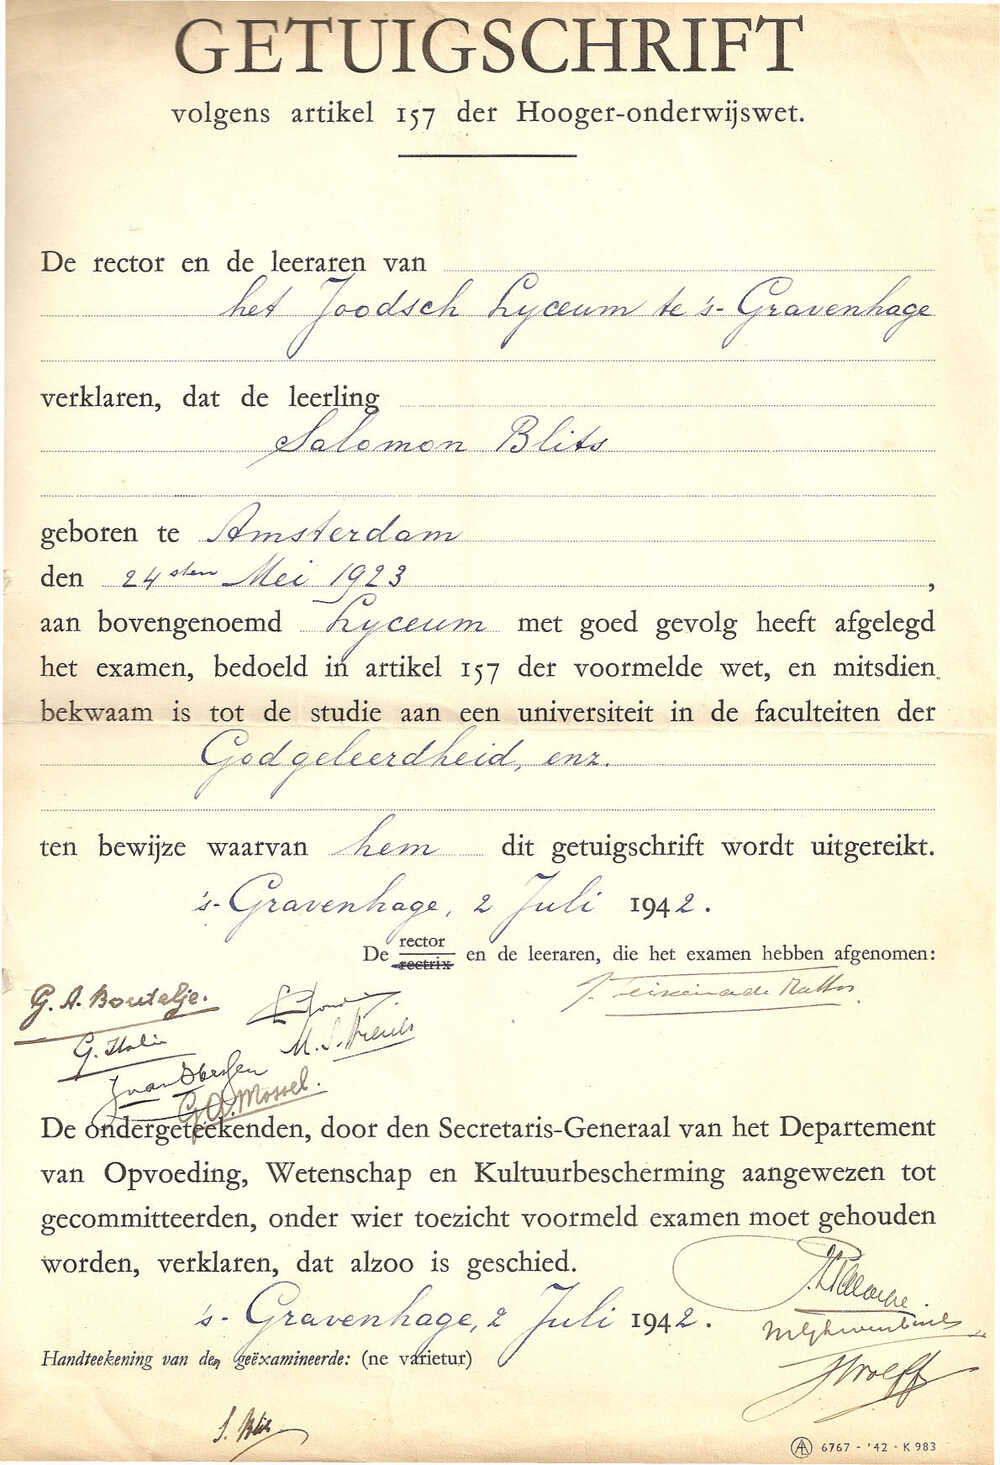 GETUIGSCHRIFT
volgens artikel 157 der Hooger-onderwijswet.
De rector en de leeraren van
het Joodsch Lyceum te 's-Gravenhage
verklaren, dat de leerling
Salomon Blits
geboren te Amsterdam
den 24sten Mei 1923,
aan bovengenoemd Lyceum met goed gevolg heeft afgelegd
het examen, bedoeld in artikel 157 der voormelde wet, en mitsdien
bekwaam is tot de studie aan een universiteit in de faculteiten der
Godgeleerdheid, enz.
ten bewijze waarvan hem dit getuigschrift wordt uitgereikt.
's-Gravenhage, 2 Juli 1942.
De rector
rectrix en de leeraren, die het examen hebben afgenomen:
G. A. Boutelje.
J. Teixeira de Mattos
G. Italie
M. S.
G. A. Mossel.
De ondergeteekenden, door den Secretaris-Generaal van het Departement
van Opvoeding, Wetenschap en Kultuurbescherming aangewezen tot
gecommitteerden, onder wier toezicht voormeld examen moet gehouden
worden, verklaren, dat alzoo is geschied.
's-Gravenhage, 2 Juli 1942.
Handteekening van den geëxamineerde: (ne varietur)
S. Blits
AL 6767 - '42 - K 983